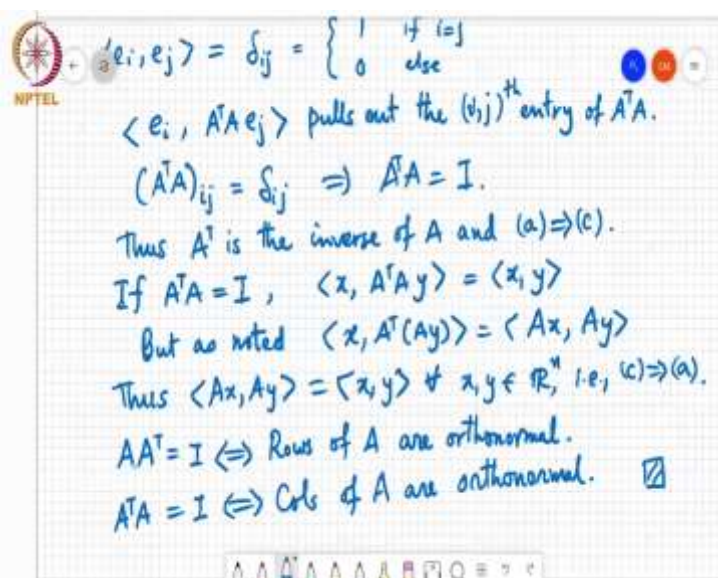 ⟨e_i, e_j⟩ = δ_ij = { 1 if i=j
0 else
NPTEL
⟨e_i, AᵀA e_j⟩ pulls out the (i,j)ᵗʰ entry of AᵀA.
(AᵀA)_ij = δ_ij ⇒ AᵀA = I.
Thus Aᵀ is the inverse of A and (a)⇒(c).
If AᵀA = I, ⟨x, AᵀAy⟩ = ⟨x, y⟩
But as noted ⟨x, Aᵀ(Ay)⟩ = ⟨Ax, Ay⟩
Thus ⟨Ax, Ay⟩ = ⟨x, y⟩ ∀ x, y ∈ ℝⁿ, i.e., (c)⇒(a).
AAᵀ = I ⇔ Rows of A are orthonormal.
AᵀA = I ⇔ Cols of A are orthonormal.